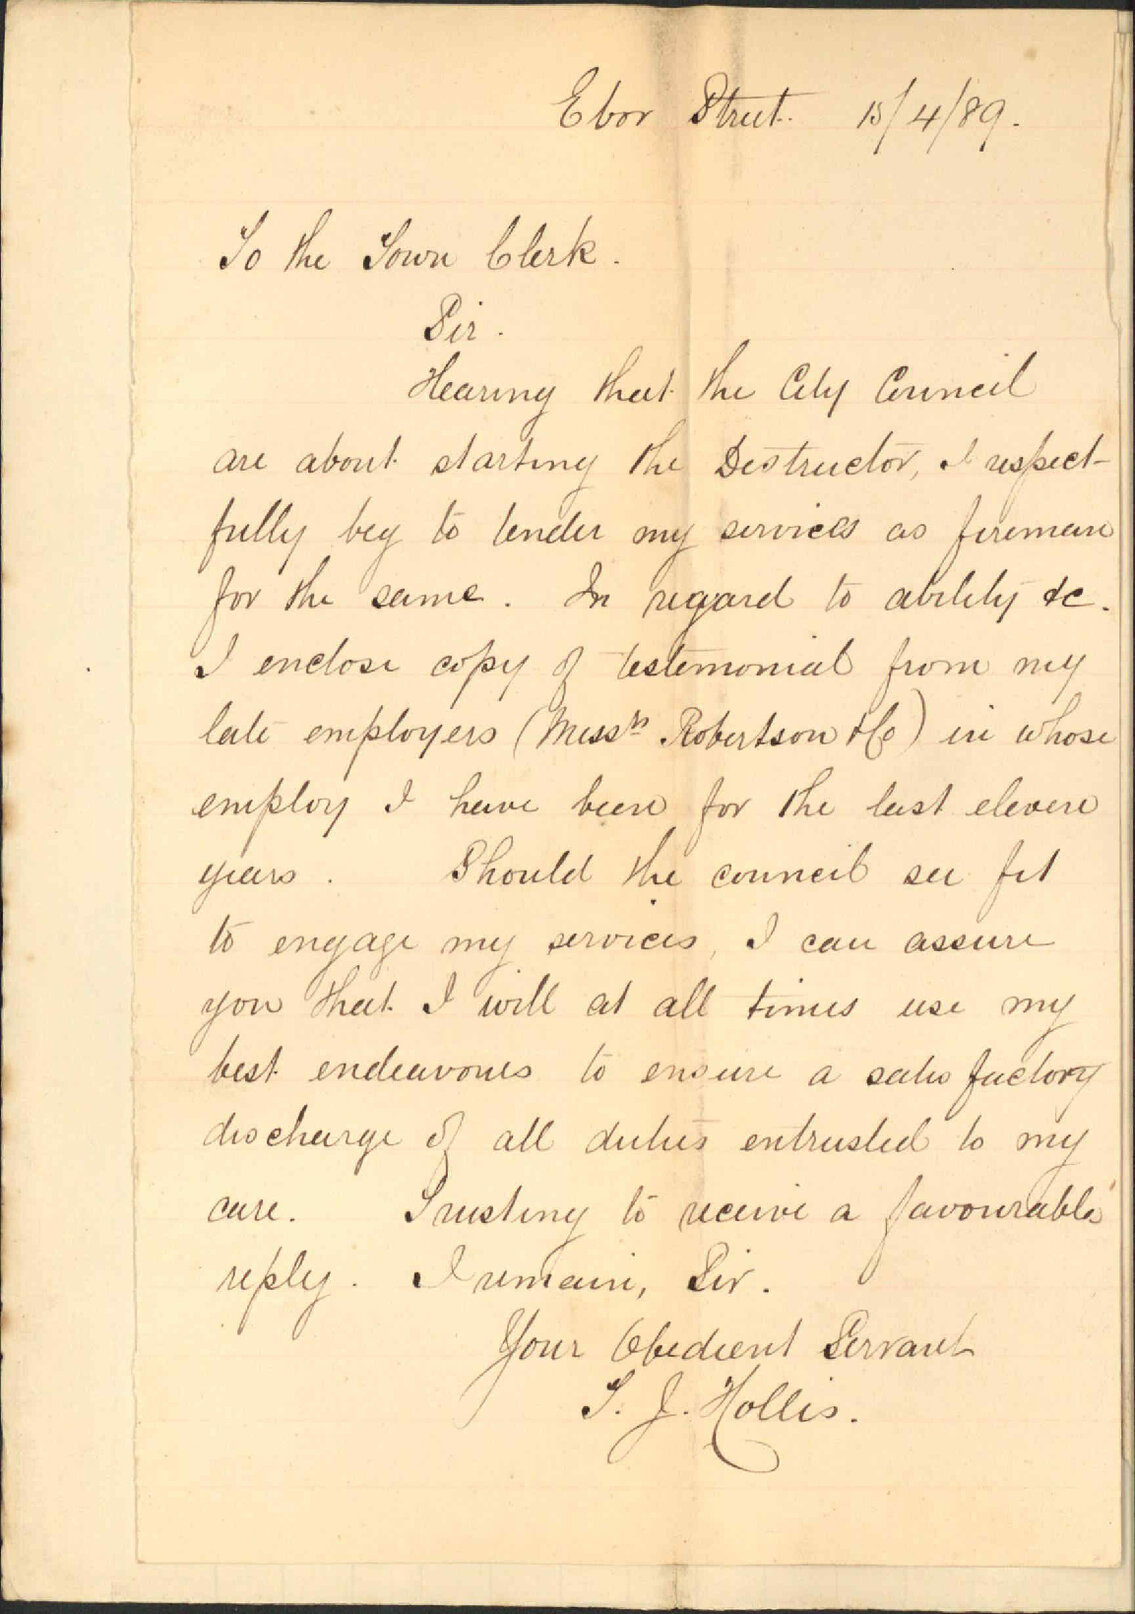 Ebor Street. 15/4/89.
To the Town Clerk.
Sir.
Hearing that the City Council
are about starting the Destructor, I respect-
fully beg to tender my services as fireman
for the same. In regard to ability &c.
I enclose copy of testimonial from my
late employers (Messrs Robertson & Co) in whose
employ I have been for the last eleven
years. Should the council see fit
to engage my services, I can assure
you that I will at all times use my
best endeavours to ensure a satisfactory
discharge of all duties entrusted to my
care. Trusting to receive a favourable
reply. I remain, Sir.
Your Obedient Servant
T. J. Hollis.